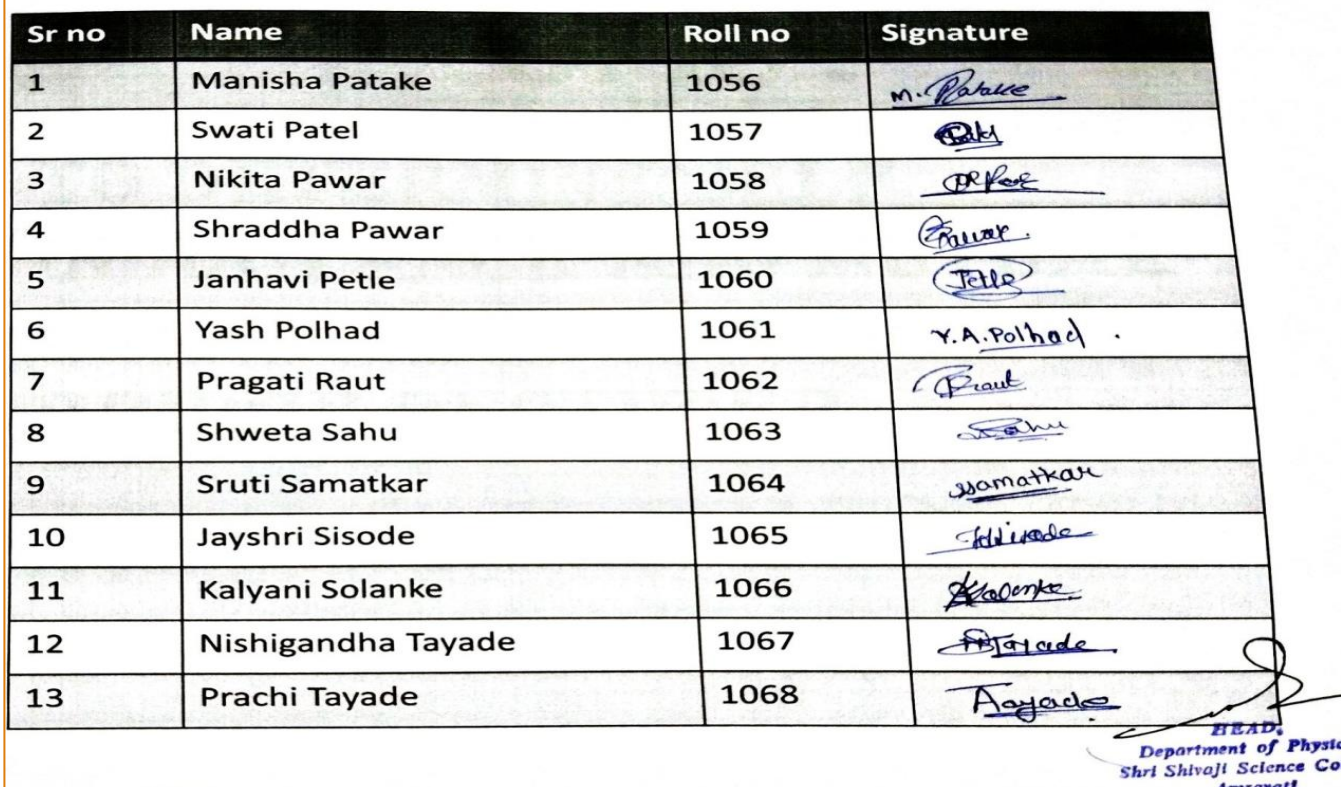 Sr no Name Roll no Signature
1 Manisha Patake 1056 M. Patake
2 Swati Patel 1057
3 Nikita Pawar 1058
4 Shraddha Pawar 1059 Pawar.
5 Janhavi Petle 1060 Petle
6 Yash Polhad 1061 Y.A.Polhad .
7 Pragati Raut 1062 Praut
8 Shweta Sahu 1063 Sahu
9 Sruti Samatkar 1064 SSamatkar
10 Jayshri Sisode 1065
11 Kalyani Solanke 1066
12 Nishigandha Tayade 1067 Tayade
13 Prachi Tayade 1068 Tayade
HEAD,
Department of Physic
Shri Shivaji Science Co